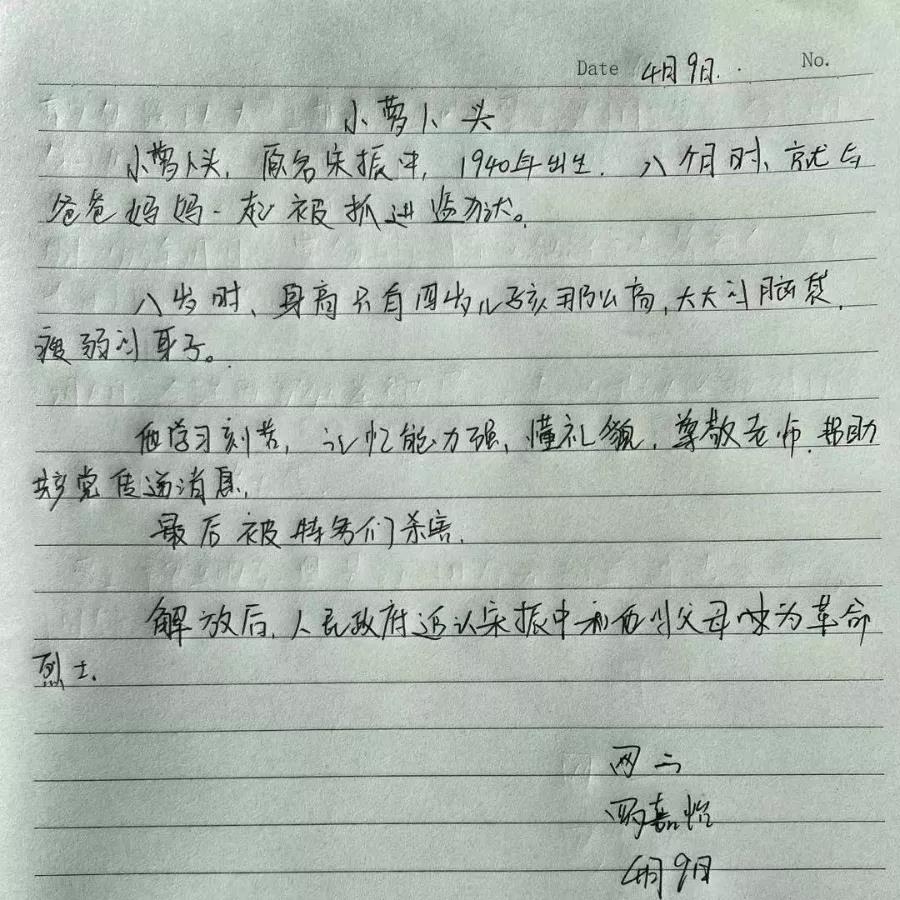 Date 4月9日. No.
小萝卜头
小萝卜头, 原名宋振中, 1940年出生. 八个月时、就与
爸爸妈妈一起被抓进监狱。
八岁时、身高只有四岁儿孩那么高,大大的脑袋,
瘦弱的身子。
他学习刻苦, 记忆能力强, 懂礼貌, 尊敬老师, 帮助
共产党传递消息,
最后被特务们杀害.
解放后, 人民政府追认宋振中和他的父母妹为革命
烈士.
网二
嘉怡
4月9日